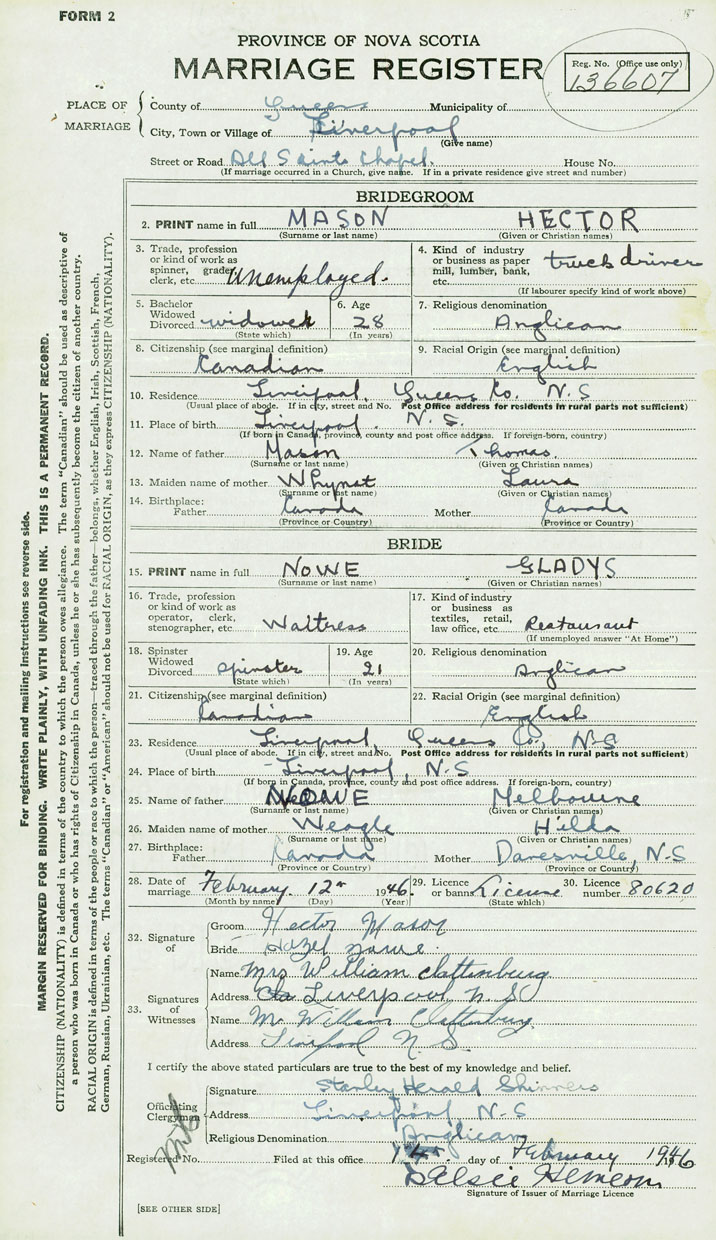 FORM 2
PROVINCE OF NOVA SCOTIA
MARRIAGE REGISTER
Reg. No. (Office use only)
136607
PLACE OF MARRIAGE
County of Queens Municipality of
City, Town or Village of Liverpool
(Give name)
Street or Road All Saints Chapel. House No.
(If marriage occurred in a Church, give name. If in a private residence give street and number)
BRIDEGROOM
2. PRINT name in full MASON HECTOR
(Surname or last name) (Given or Christian names)
3. Trade, profession or kind of work as spinner, grader, clerk, etc. Unemployed.
4. Kind of industry or business as paper mill, lumber, bank, etc. truck driver
(If labourer specify kind of work above)
5. Bachelor Widowed Divorced widowed
(State which)
6. Age 28
(In years)
7. Religious denomination
Anglican
8. Citizenship (see marginal definition)
Canadian
9. Racial Origin (see marginal definition)
English
10. Residence Liverpool, Queens Co. N.S
(Usual place of abode. If in city, street and No. Post Office address for residents in rural parts not sufficient)
11. Place of birth Liverpool. N.S.
(If born in Canada, province, county and post office address. If foreign-born, country)
12. Name of father Mason Thomas.
(Surname or last name) (Given or Christian names)
13. Maiden name of mother Whynot Laura
(Surname or last name) (Given or Christian names)
14. Birthplace: Father Canada Mother Canada
(Province or Country) (Province or Country)
BRIDE
15. PRINT name in full NOWE GLADYS
(Surname or last name) (Given or Christian names)
16. Trade, profession or kind of work as operator, clerk, stenographer, etc. Waitress
17. Kind of industry or business as textiles, retail, law office, etc. Restaurant
(If unemployed answer "At Home")
18. Spinster Widowed Divorced spinster
(State which)
19. Age 21
(In years)
20. Religious denomination
Anglican
21. Citizenship (see marginal definition)
Canadian
22. Racial Origin (see marginal definition)
English
23. Residence Liverpool, Queens Co, N-S
(Usual place of abode. If in city, street and No. Post Office address for residents in rural parts not sufficient)
24. Place of birth Liverpool, N-S
(If born in Canada, province, county and post office address. If foreign-born, country)
25. Name of father NOWE Melbourne
(Surname or last name) (Given or Christian names)
26. Maiden name of mother Weagle Hilda
(Surname or last name) (Given or Christian names)
27. Birthplace: Father Canada Mother Danesville, N-S
(Province or Country) (Province or Country)
28. Date of marriage February 12th 1946.
(Month by name) (Day) (Year)
29. Licence or banns License
(State which)
30. Licence number 80620
32. Signature of
Groom Hector Mason
Bride Hazel Nowe.
33. Signatures of Witnesses
Name Mrs William Clattenburg
Address Liverpool, N.S
Name Mr William Clattenburg
Address Liverpool N.S.
I certify the above stated particulars are true to the best of my knowledge and belief.
Officiating Clergyman
Signature Stanley Herald Shinners
Address Liverpool, N-S
Religious Denomination Anglican
Registered No. Filed at this office 14th day of February 1946
Signature of Issuer of Marriage Licence
[SEE OTHER SIDE]
For registration and mailing instructions see reverse side.
MARGIN RESERVED FOR BINDING. WRITE PLAINLY, WITH UNFADING INK. THIS IS A PERMANENT RECORD.
CITIZENSHIP (NATIONALITY) is defined in terms of the country to which the person owes allegiance. The term "Canadian" should be used as descriptive of
a person who was born in Canada or who has rights of Citizenship in Canada, unless he or she has subsequently become the citizen of another country.
RACIAL ORIGIN is defined in terms of the people or race to which the person—traced through the father—belongs, whether English, Irish, Scottish, French,
German, Russian, Ukrainian, etc. The terms "Canadian" or "American" should not be used for RACIAL ORIGIN, as they express CITIZENSHIP (NATIONALITY).